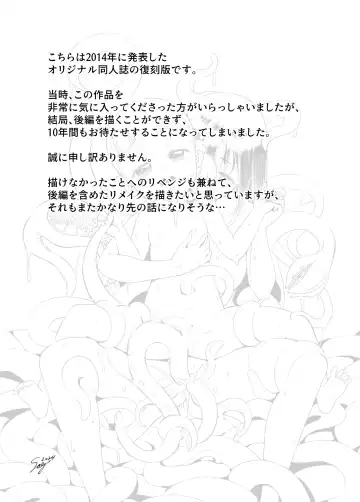 こちらは2014年に発表した
オリジナル同人誌の復刻版です。
当時、この作品を
非常に気に入ってくださった方がいらっしゃいましたが、
結局、後編を描くことができず、
10年間もお待たせすることになってしまいました。
誠に申し訳ありません。
描けなかったことへのリベンジも兼ねて、
後編を含めたリメイクを描きたいと思っていますが、
それもまたかなり先の話になりそうな…